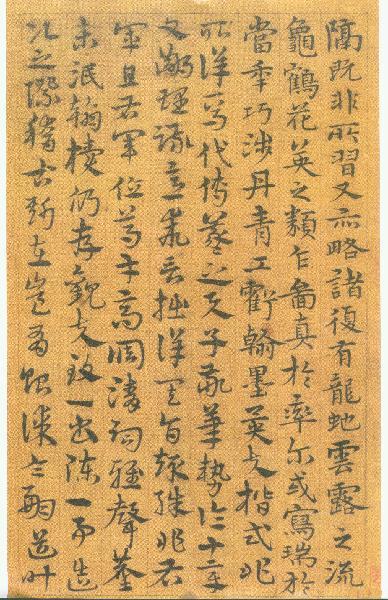 隔既非所習又亦略諸復有龍虵雲露之流
龜鶴花英之類乍圖真於率尔或寫瑞於
當年巧涉丹青工虧翰墨異夫楷式非
所詳焉代傳羲之与子敬筆勢論十章
文鄙理疎意乖言拙詳其旨趣殊非右
軍且右軍位重才高調清詞雅聲塵
未泯翰牘仍存觀夫致一書陳一事造
次之際稽古斯在豈有貽謀令嗣道叶